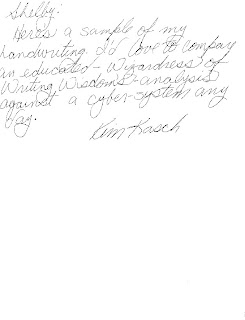 Shelby:
Here's a sample of my
handwriting. I'd love to compay
an educated - Wizardress of
Writing Wisdoms - analysis
against a cyber-system any
day.
Kim Kasch